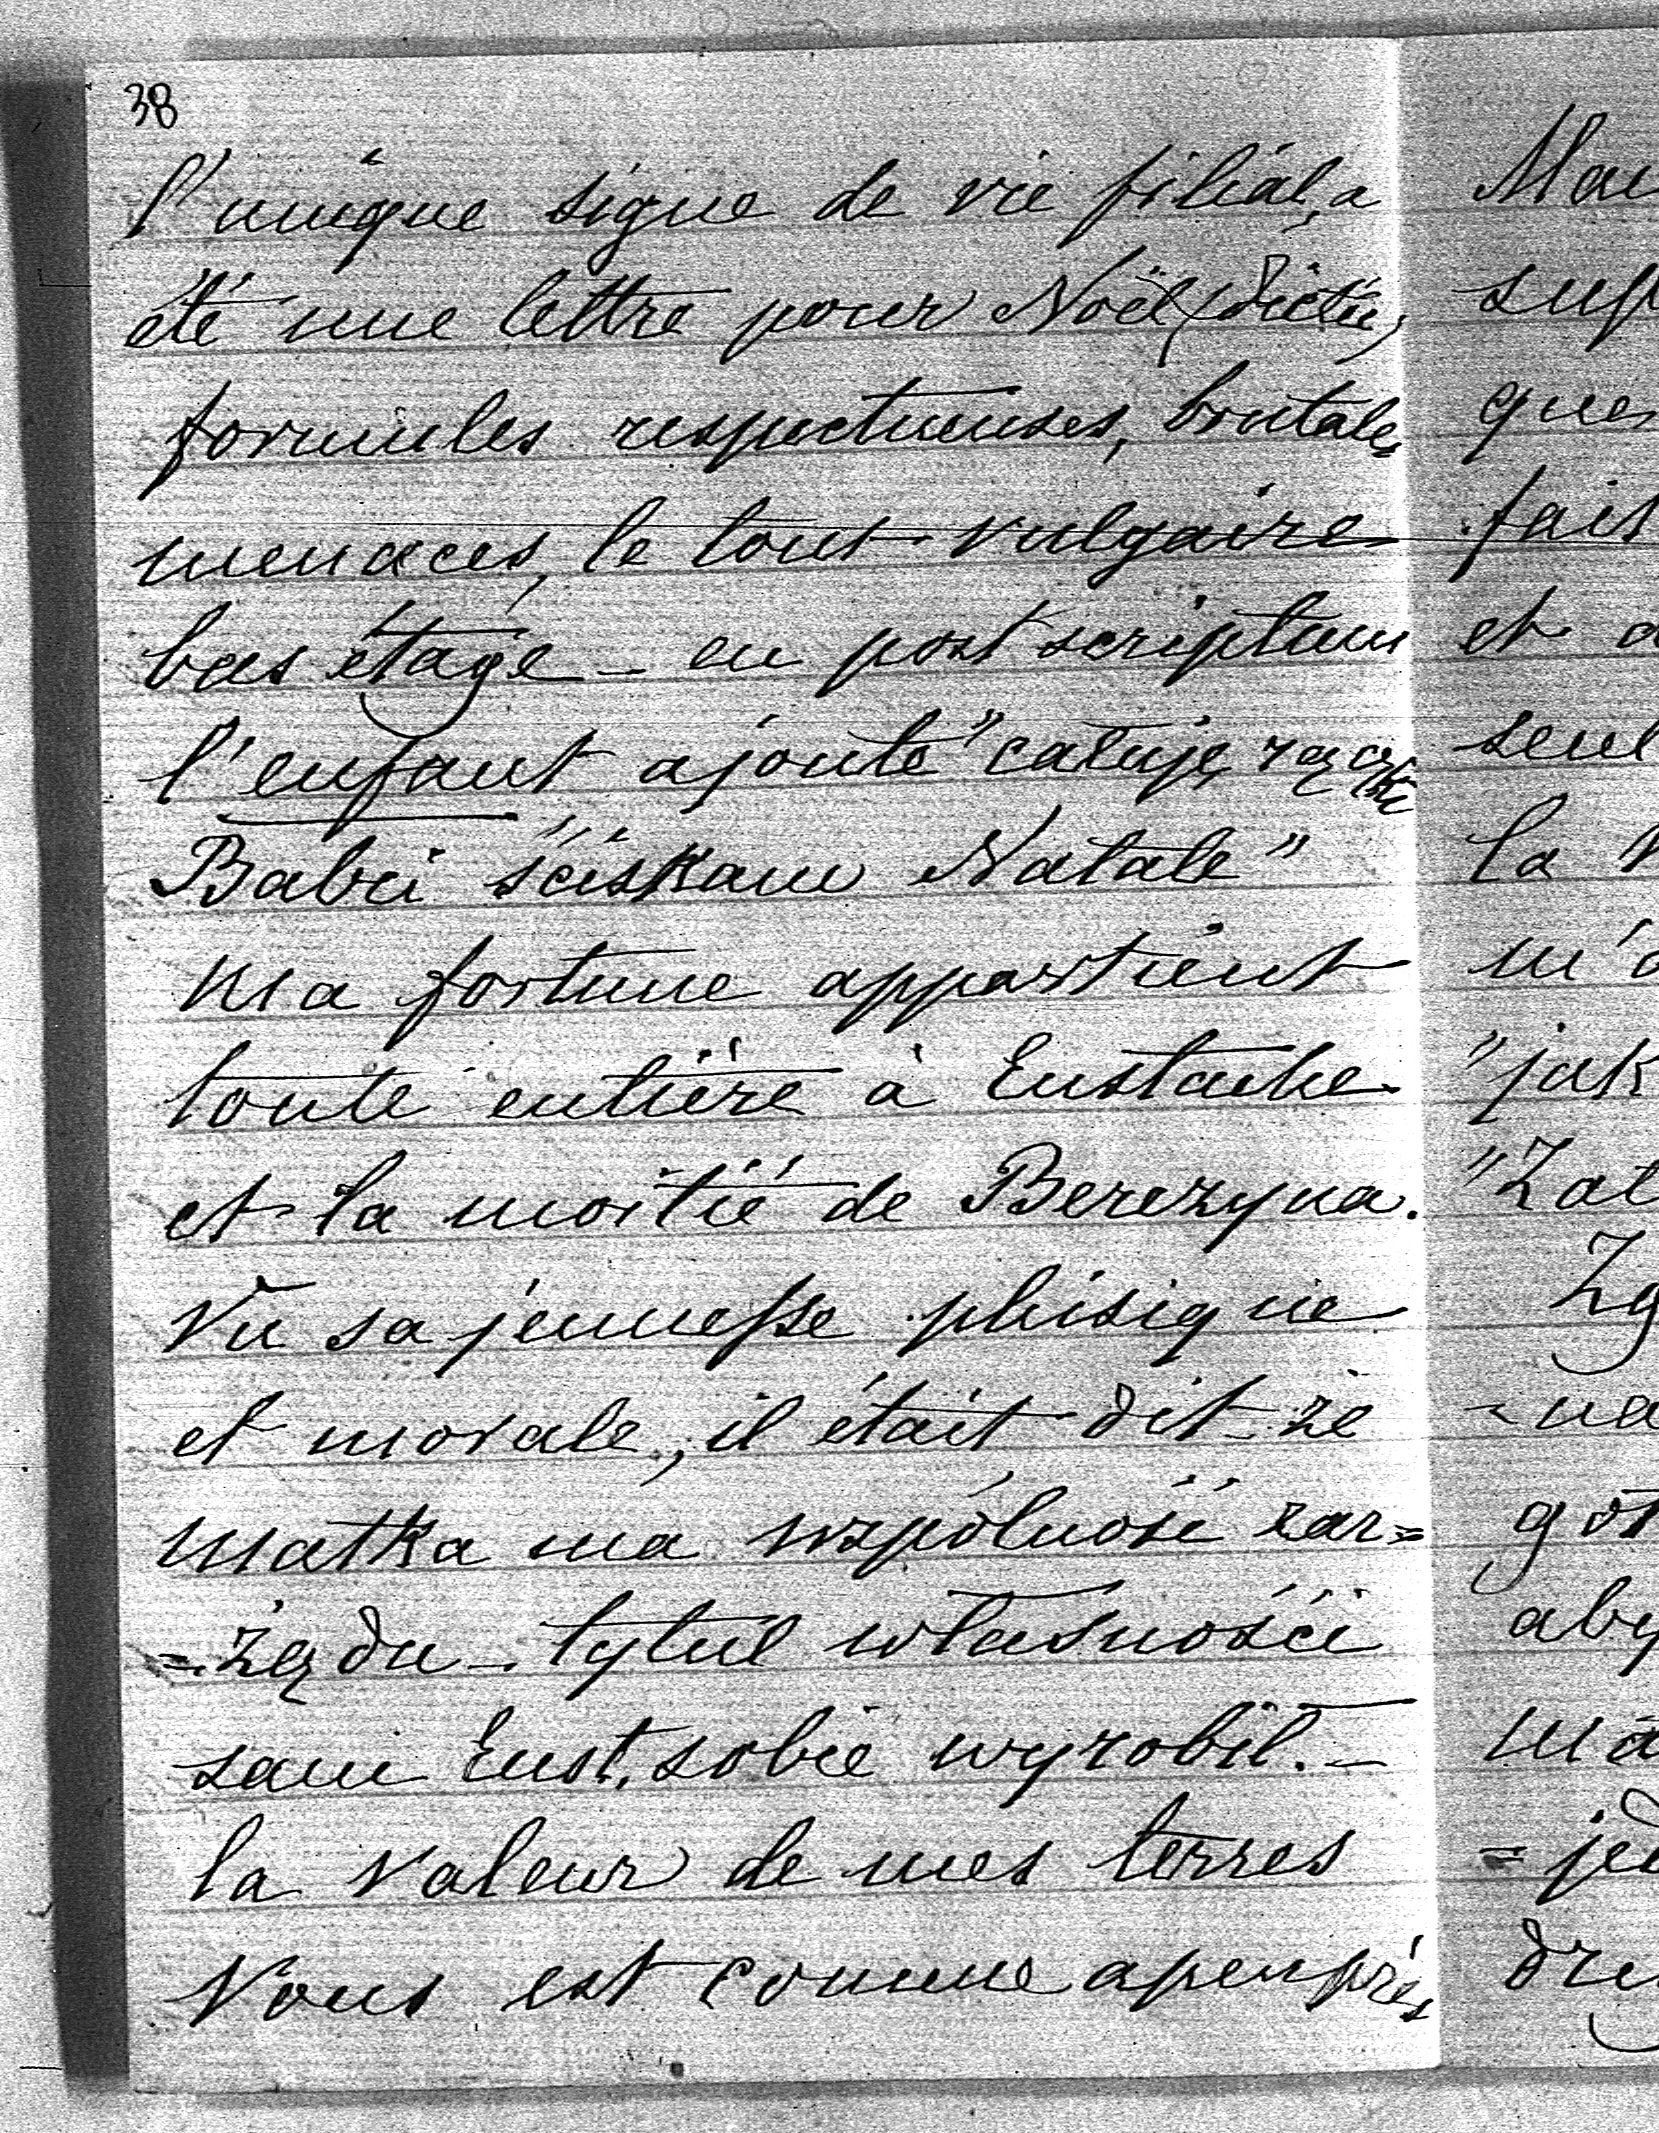 38
l'unique signe de vie filial, a
été une lettre pour Noël (dictée,
formules respectueuses, brutales
menaces, le tout vulgaire
bas étage – en post scriptum
l'enfant ajoute "całuję rączki
Babci ściskam Natalę"
Ma fortune appartient
toute entière à Eustache
et la moitié de Berezyna.
Vu sa jeunesse phisique
et morale, il était dit że
matka ma wspólność zar=
=ządu – tytuł własności
sam Eust. sobie wyrobił. –
la valeur de mes terres
Vous est connue apeuprès
Mau
sup
que
fait
et a
seul
la
m'a
"jak
"Zal
Zg
=na
got
aby
ma
=jed
dru